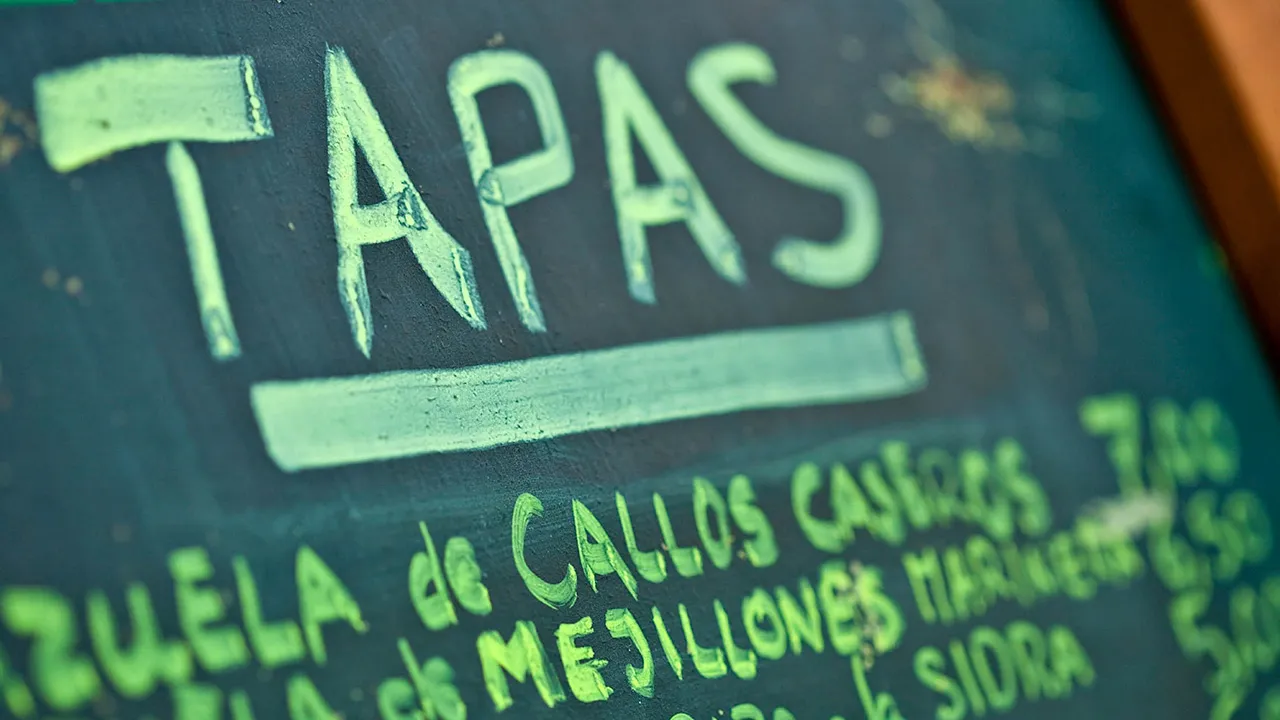 TAPAS
ZUELA de CALLOS CASEROS 7,00
LA de MEJILLONES MARINERA 6,50
la SIDRA 5,00